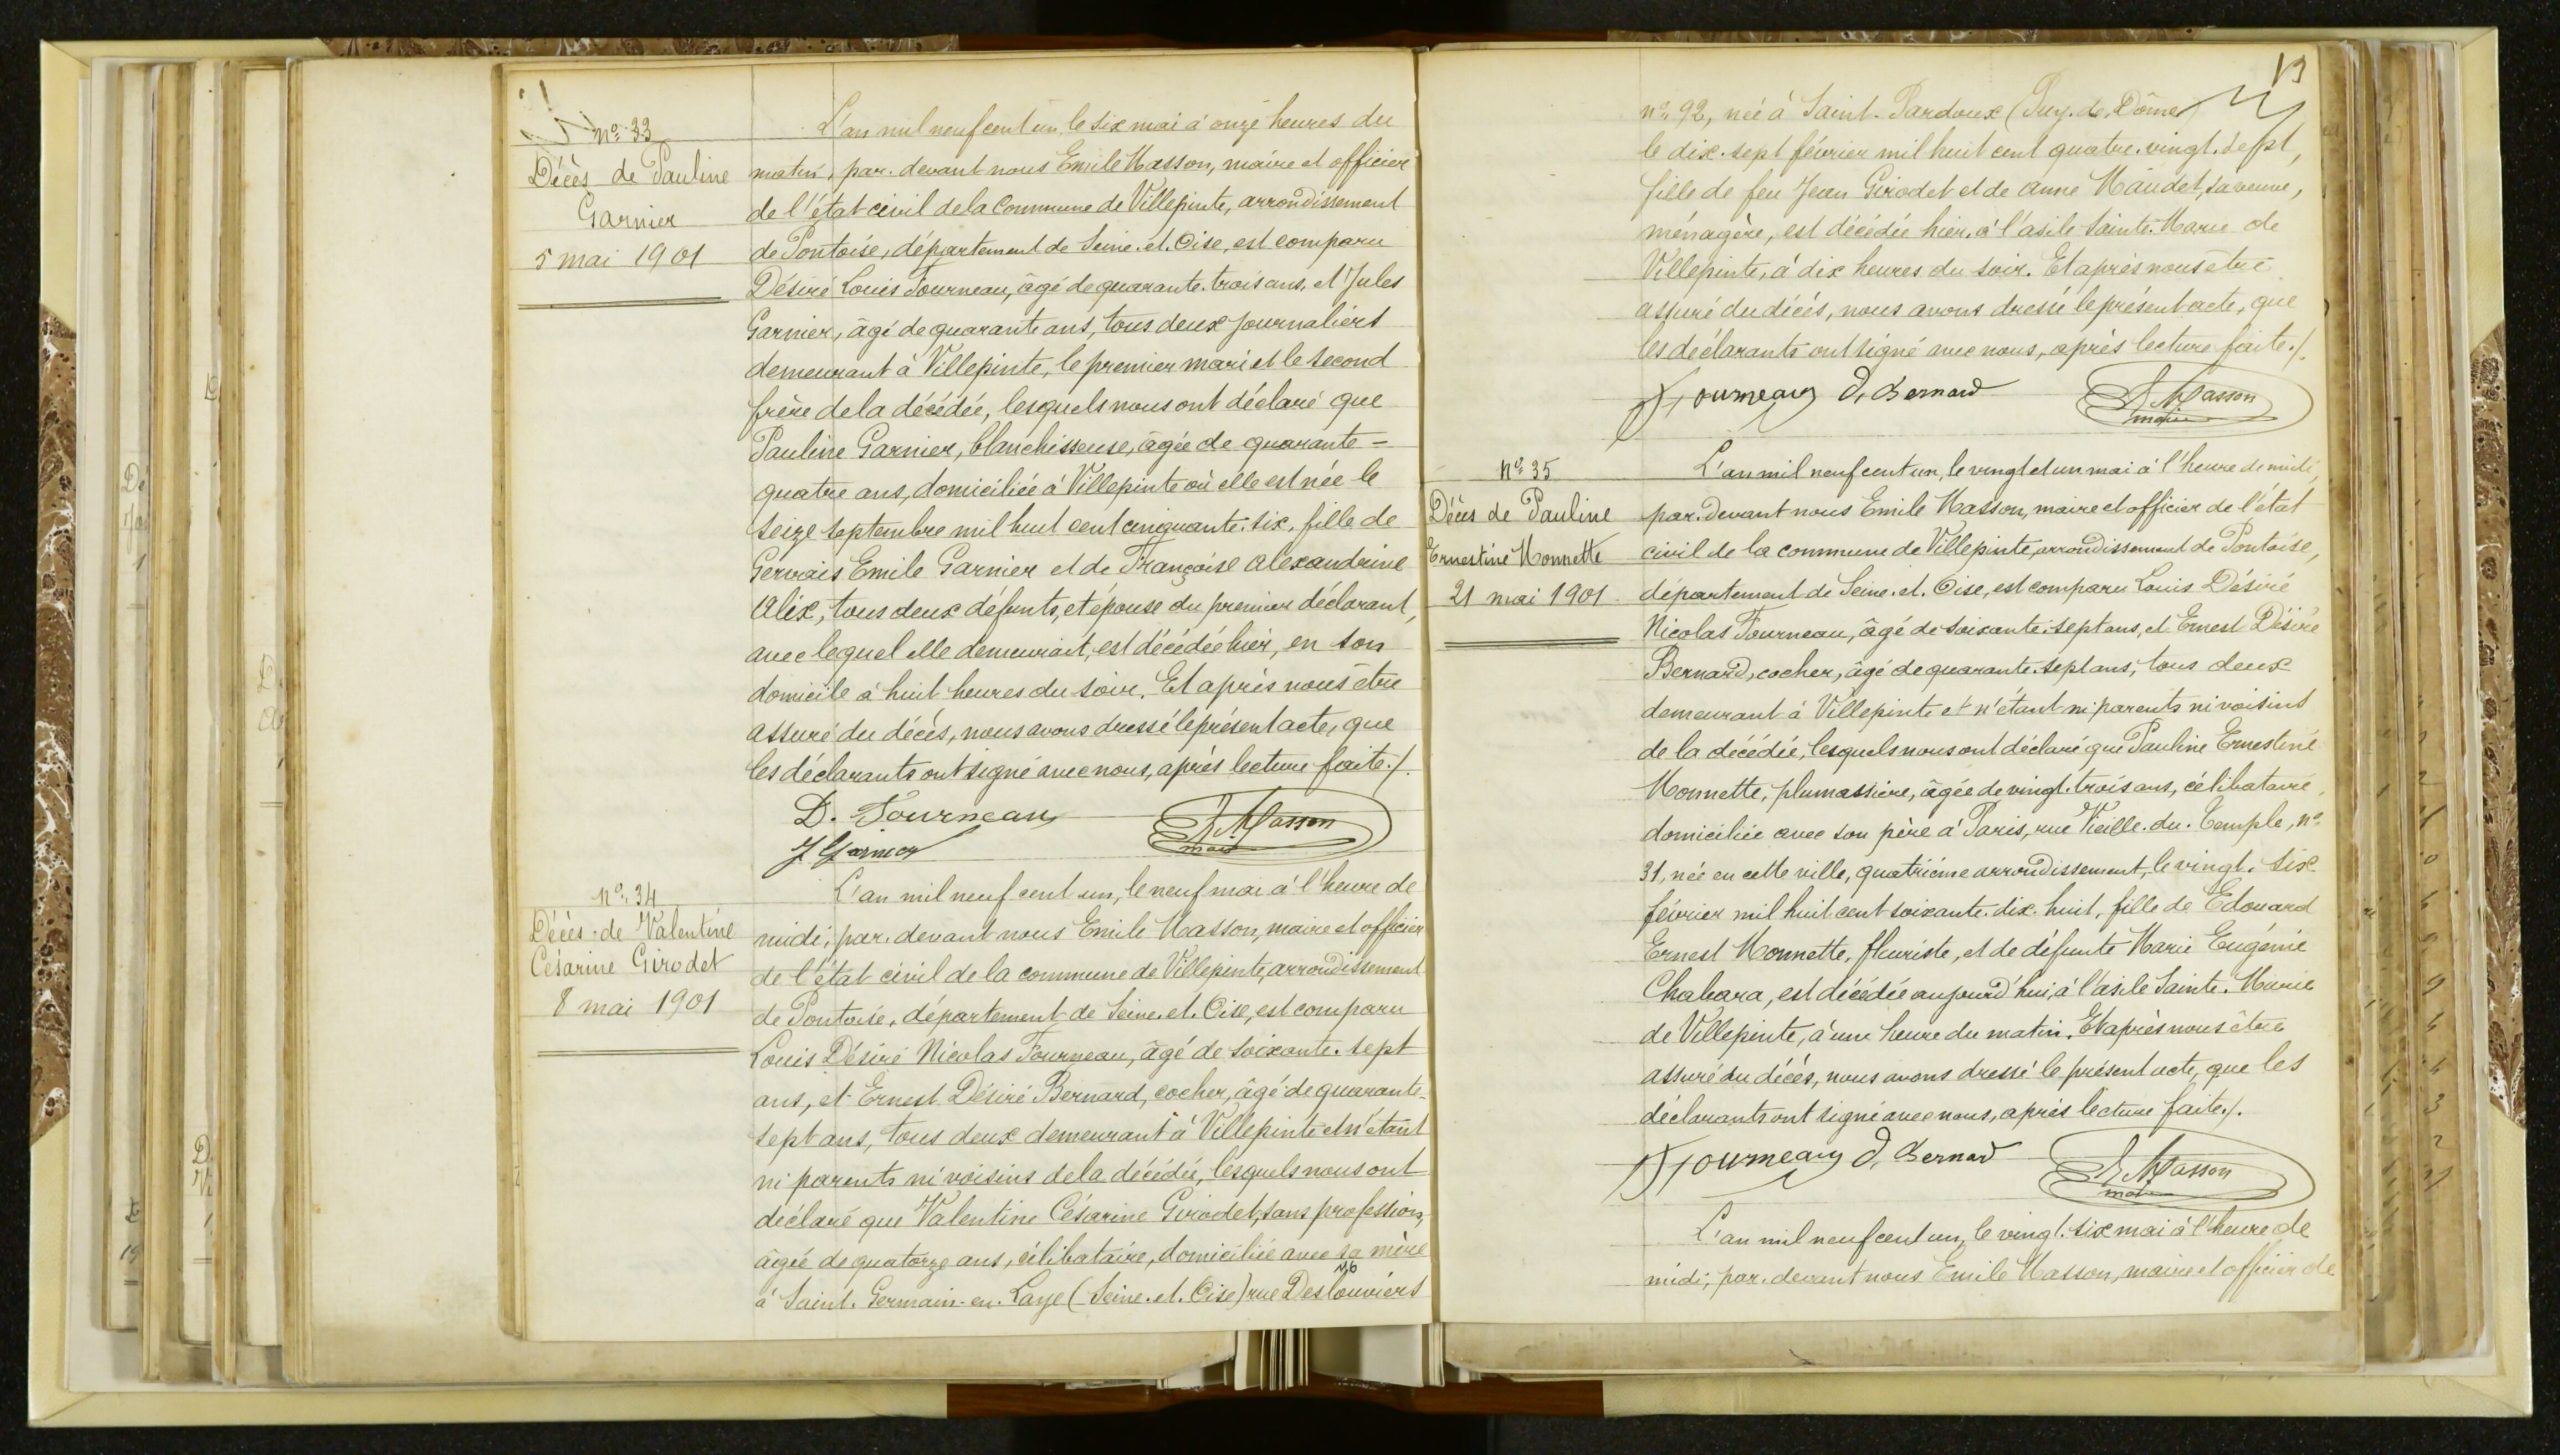 nº 33
Décès de Pauline
Garnier
5 mai 1901
L'an mil neuf cent un, le six mai à onze heures du
matin, par-devant nous Emile Masson, maire et officier
de l'état civil de la Commune de Villepinte, arrondissement
de Pontoise, département de Seine-et-Oise, est comparu
Désiré Louis Fourneau, âgé de quarante-trois ans, et Jules
Garnier, âgé de quarante ans, tous deux journaliers
demeurant à Villepinte, le premier mari et le second
frère de la décédée, lesquels nous ont déclaré que
Pauline Garnier, blanchisseuse, âgée de quarante-
quatre ans, domiciliée à Villepinte où elle est née le
seize septembre mil huit cent cinquante-six, fille de
Gervais Emile Garnier et de Françoise Alexandrine
Alix, tous deux défunts, et épouse du premier déclarant,
avec lequel elle demeurait, est décédée hier, en son
domicile à huit heures du soir. Et après nous être
assuré du décès, nous avons dressé le présent acte, que
les déclarants ont signé avec nous, après lecture faite./.
D. Fourneau
E. Masson
maire
J Garnier
nº 34
Décès de Valentine
Césarine Girodet
8 mai 1901
L'an mil neuf cent un, le neuf mai à l'heure de
midi, par-devant nous Emile Masson, maire et officier
de l'état civil de la commune de Villepinte, arrondissement
de Pontoise, département de Seine-et-Oise, est comparu
Louis Désiré Nicolas Fourneau, âgé de soixante-sept
ans, et Ernest Désiré Bernard, cocher, âgé de quarante-
sept ans, tous deux demeurant à Villepinte et n'étant
ni parents ni voisins de la décédée, lesquels nous ont
déclaré que Valentine Césarine Girodet, sans profession,
âgée de quatorze ans, célibataire, domiciliée avec sa mère
à Saint-Germain-en-Laye (Seine-et-Oise) rue Des Louviers
13
nº 92, née à Saint-Pardoux (Puy-de-Dôme)
le dix-sept février mil huit cent quatre-vingt-sept,
fille de feu Jean Girodet et de Anne Maudet, sa veuve,
ménagère, est décédée hier, à l'asile Sainte-Marie de
Villepinte, à dix heures du soir. Et après nous être
assuré du décès, nous avons dressé le présent acte, que
les déclarants ont signé avec nous, après lecture faite./.
Fourneau D. Bernard
E. Masson
maire
nº 35
Décès de Pauline
Ernestine Monnette
21 mai 1901
L'an mil neuf cent un, le vingt et un mai à l'heure de midi,
par-devant nous Emile Masson, maire et officier de l'état
civil de la commune de Villepinte, arrondissement de Pontoise,
département de Seine-et-Oise, est comparu Louis Désiré
Nicolas Fourneau, âgé de soixante-sept ans, et Ernest Désiré
Bernard, cocher, âgé de quarante-sept ans, tous deux
demeurant à Villepinte et n'étant ni parents ni voisins
de la décédée, lesquels nous ont déclaré que Pauline Ernestine
Monnette, plumassière, âgée de vingt-trois ans, célibataire,
domiciliée avec son père à Paris, rue Vieille-du-Temple, nº
31, née en cette ville, quatrième arrondissement, le vingt-six
février mil huit cent soixante-dix-huit, fille de Edouard
Ernest Monnette, fleuriste, et de défunte Marie Eugénie
Chabara, est décédée aujourd'hui, à l'asile Sainte-Marie
de Villepinte, à une heure du matin. Et après nous être
assuré du décès, nous avons dressé le présent acte, que les
déclarants ont signé avec nous, après lecture faite./.
Fourneau D. Bernard
E. Masson
maire
L'an mil neuf cent un, le vingt-six mai à l'heure de
midi, par-devant nous Emile Masson, maire et officier de